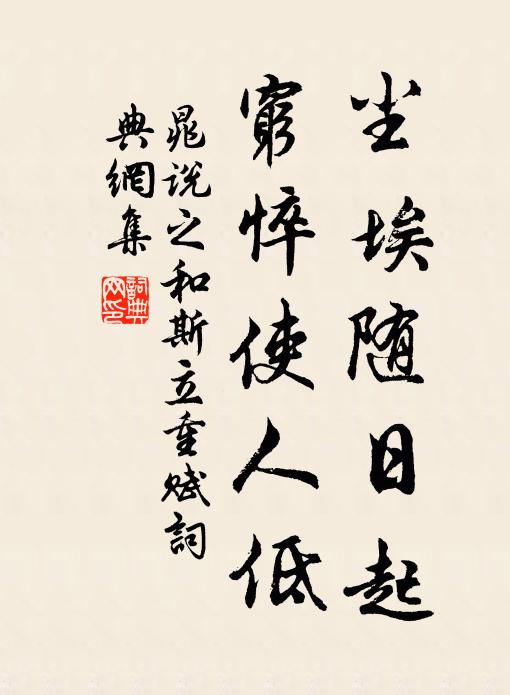 尘埃随日起
窮悴使人低
晁说之和斯立重赋詞
典網集
詞典网印